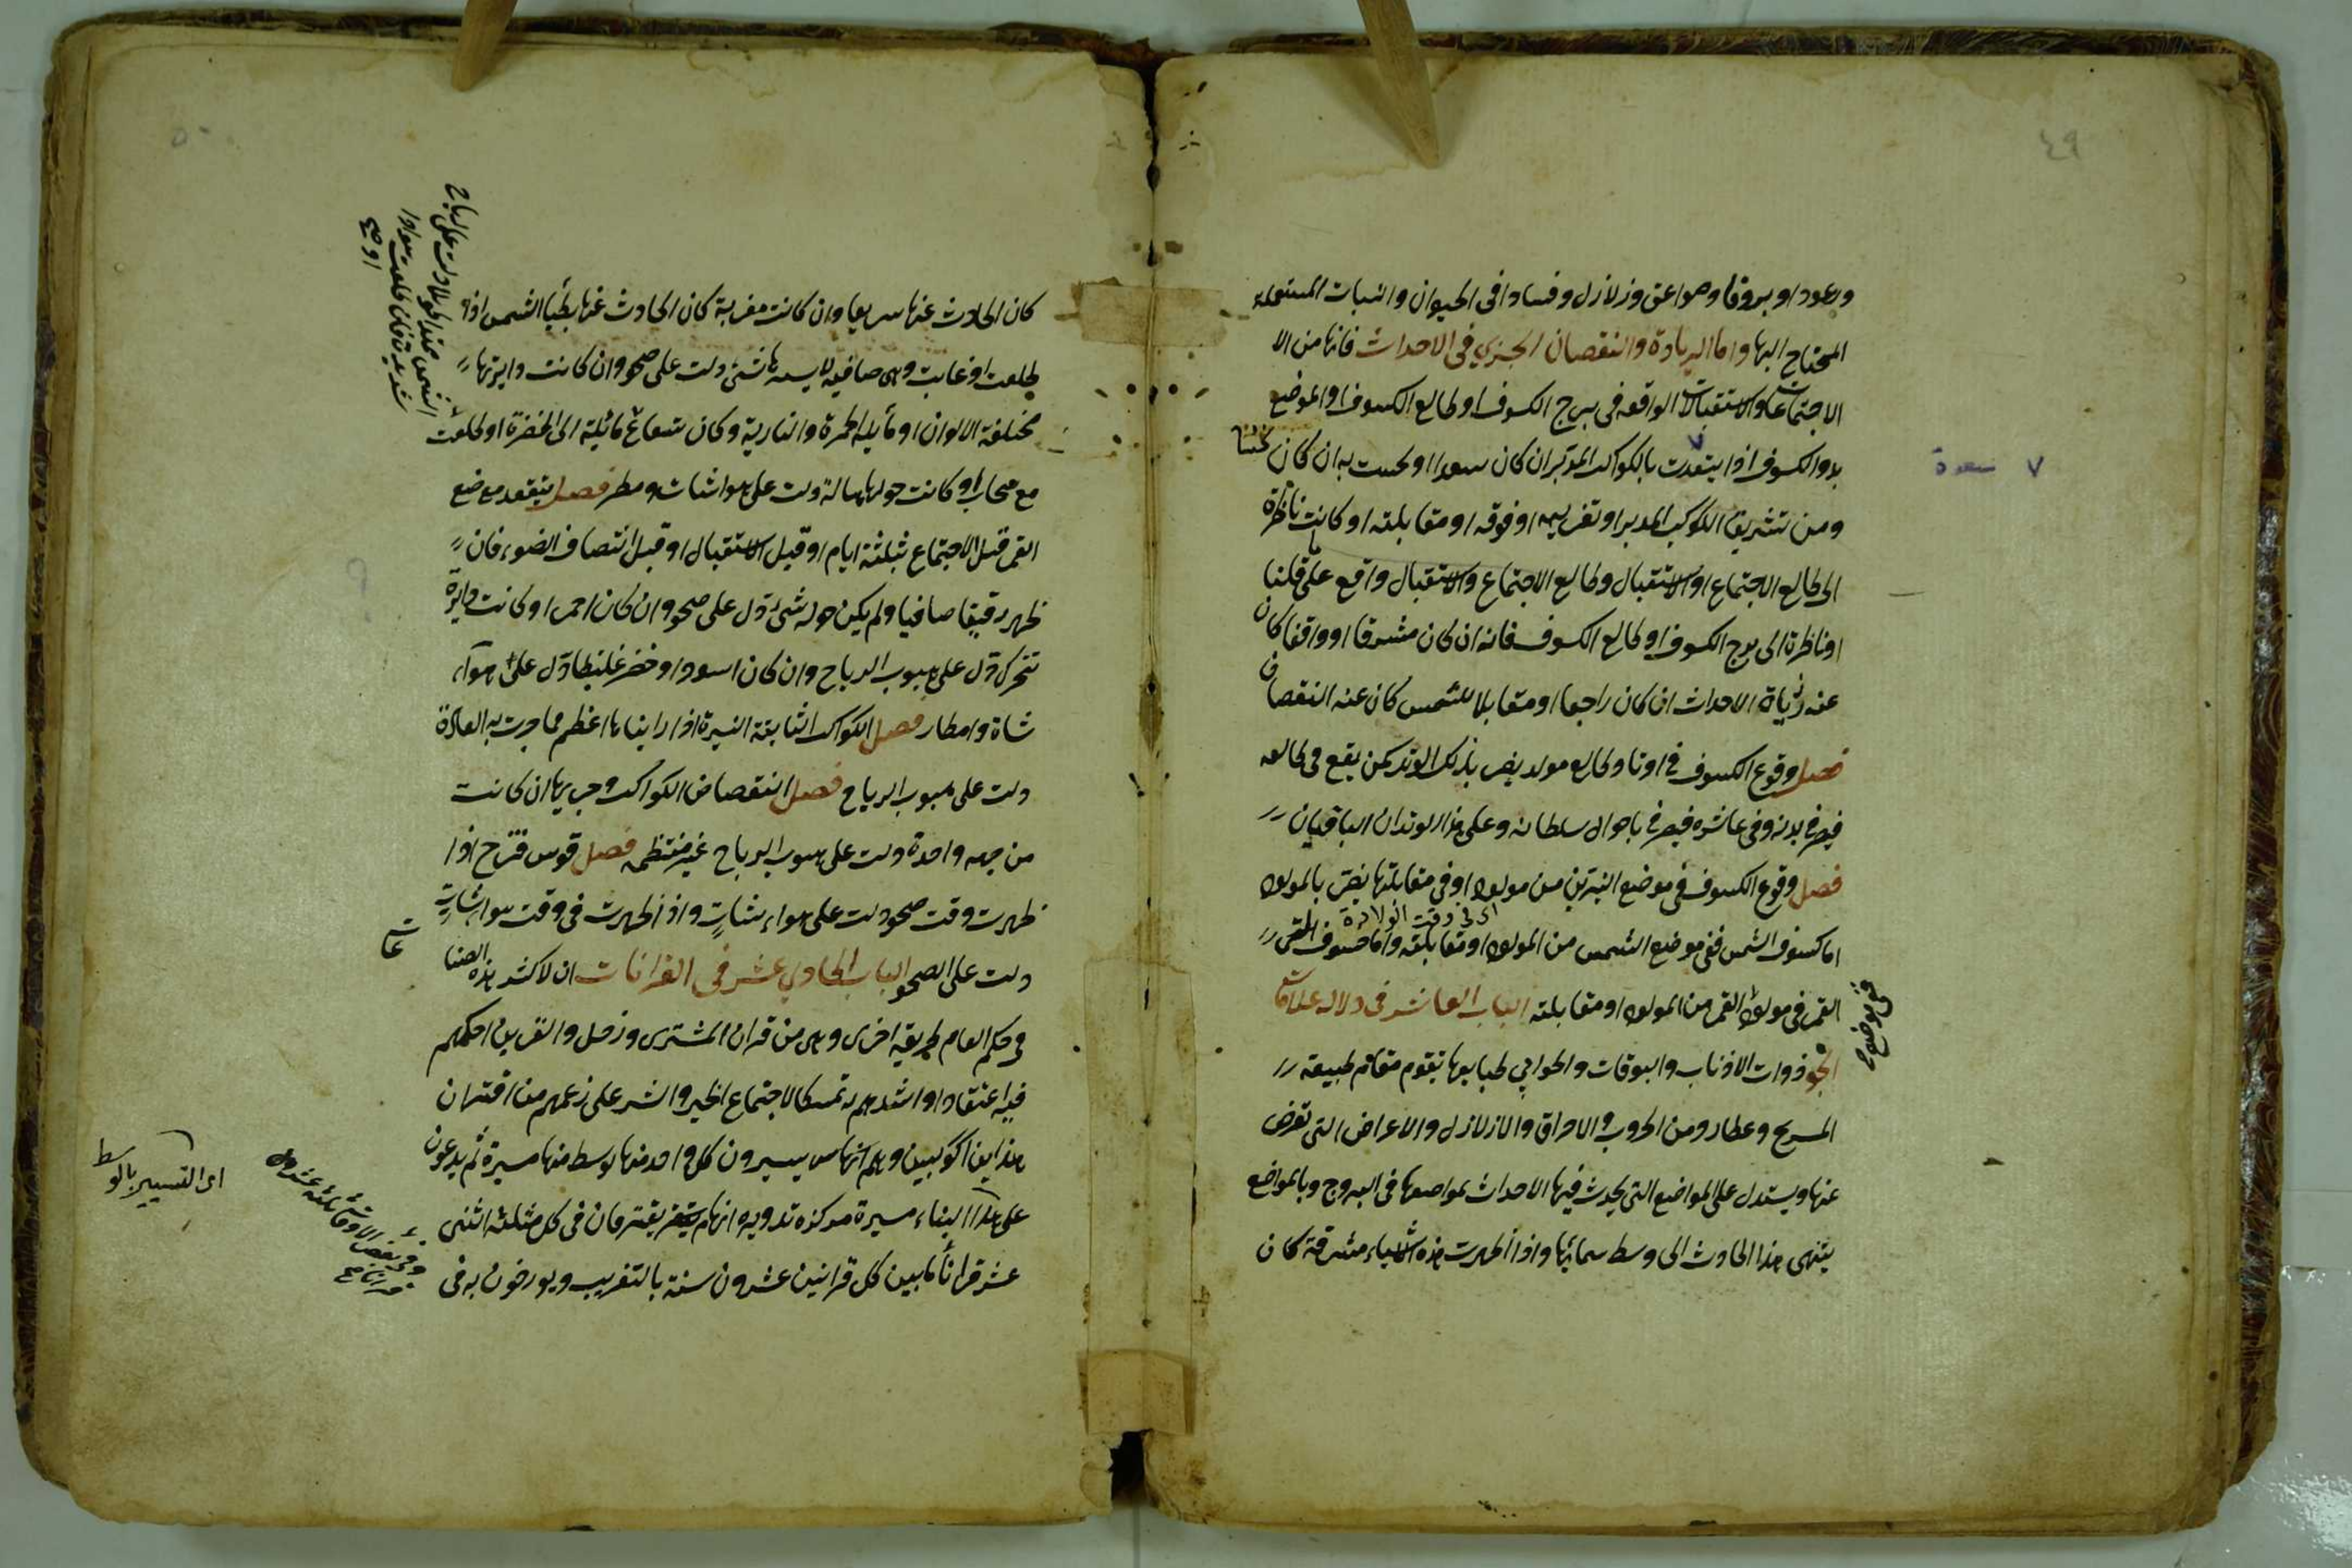 ٤٩
ورعودا وبروقا وصواعق وزلازل وفسادا فى الحيوان والنبات المستعمله
المحتاج اليها واما الزيادة والنقصان الجزي فى الاحداث فانها من الا
الاجتماعات والاستقبالات الواقعه فى برج الكسوف او طالع الكسوف او الموضع
بدو الكسوف اذا ابتعدت بالكواكب المدبران كان سعدا او نحست به ان كان نحسا
٧ سعدة
ومن تشريق الكوكب المدبر او تغريبه او فوقه او مقابلته او كانت ناظرة
الى طالع الاجتماع او الاستقبال وطالع الاجتماع والاستقبال واقع على ما قلنا
او ناظرة الى برج الكسوف او طالع الكسوف فانه ان كان مشرقا او واقفا كان
عنه زيادة الاحداث ان كان راجعا او مقابلا للشمس كان عنه النقصان
فصل وقوع الكسوف فى اوتاد طالع مولد يضر بذلك الوتد كمن يقع فى طالعه
فيضر فى بدنه وفى عاشره فيضر فى باحوال سلطانه وعلى هذا الوتدان الباقيان
فصل وقوع الكسوف فى موضع النيرين من مولود او فى مقابلتها يضر بالمولود
اى فى وقت الولادة
اما كسوف الشمس ففى موضع الشمس من المولود او مقابلته واما خسوف القمر
ففى موضع
القمر فى مولود القمر من المولود او مقابلته الباب العاشر فى دلاله علامات
الجو ذوات الاذناب والبوقات والحوابي طبايعها تقوم مقام طبيعة
المريخ وعطارد ومن الحروب والاحراق والزلازل والاعراض التى تعرض
عنها ويستدل على المواضع التى يحدث فيها الاحداث بمواضعها فى البروج وبالمواضع
ينتهى هذا الحادث الى وسط سمائها واذا ظهرت هذه الاشياء مشرقة كان
٥٠
كان الحادث عنها سريعا وان كانت مغربة كان الحادث عنها بطيا الشمس اذا
طلعت او غابت وهى صافيه لايسترها شئ دلت على صحو وان كانت دايرتها
مختلفة الالوان او مايله الحمرة والنارية وكان شعاع مائلة الى الخضرة او طلعت
مع سحاب او كانت حولها هالة دلت على هوا شات ومطر فصل يتفقد موضع
القمر قبل الاجتماع بثلثة ايام او قبل الاستقبال او قبل انتصاف الضوء فان
ظهر رقيقا صافيا ولم يكن حوله شى دل على صحو وان كان احمر او كانت دايرة
تتحرك دل على هبوب الرياح وان كان اسود او خضر غليظا دل على هواء
شاة وامطار فصل الكواكب الثابتة النيرة اذا راينا ها اعظم مما جرت به العادة
دلت على هبوب الرياح فصل انتقصاض الكواكب وجريها ان كانت
من جهه واحدة دلت على هبوب الرياح غير منتظمه فصل قوس قزح اذا
ظهرت وقت صحو دلت على هواء شات واذا ظهرت فى وقت هوا شات
دلت على الصحو الباب الحادي عشر فى القرانات ان لاكثر هذه الصنا
عات
فى حكم العام طريقه اخرى وهى من قران المشترى وزحل والفريق احكمهم
فيه اعتقادا واشدهم به تمسكا لاجتماع الخير والشر على زعمهم من اقتران
هذاين الكوكبين وهم انهما يسيرون كل واحد منها بوسط منها مسيرة ثم يدعون
اى التسيير بالوسط
على هذا البناء مسيرة مركزه تدويره انهام يقترقان فى كل مثلثه اثنى
عشر قرانا مابين كل قرانين عشرون سنة بالتقريب ويورخون به فى
وفى بعض الاوقات ثلثه عشر
قرانا صح